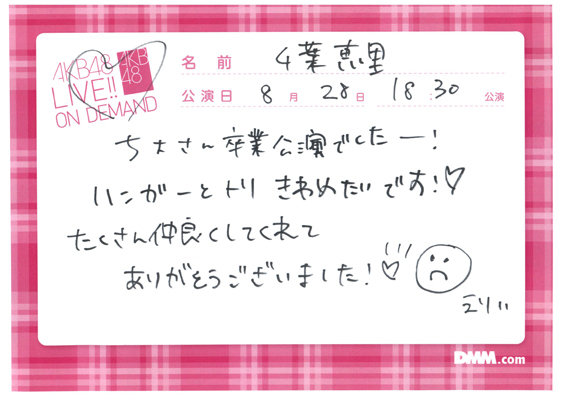 AKB48
LIVE!!
ON DEMAND
AKB
48
名前 千葉恵里
公演日 8月28日 18:30 公演
ちよさん卒業公演でしたー!
ハンガーとドリ きわめたいです!♡
たくさん仲良くしてくれて
ありがとうございました!♡
えりい
DMM.com